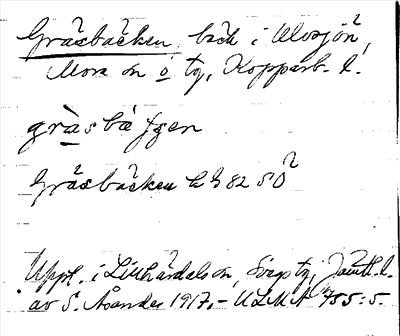 Gräsbäcken, bäck i Ulvsjön,
Mora sn o. tg, Kopparb. l.
gràsbä
Gräsbäcken h h 82 S O
Uppt. i Lillhärdals sn, Svegs tg, Jämtl. l.
av S. Åsander 1917. - ULMA 785:5.